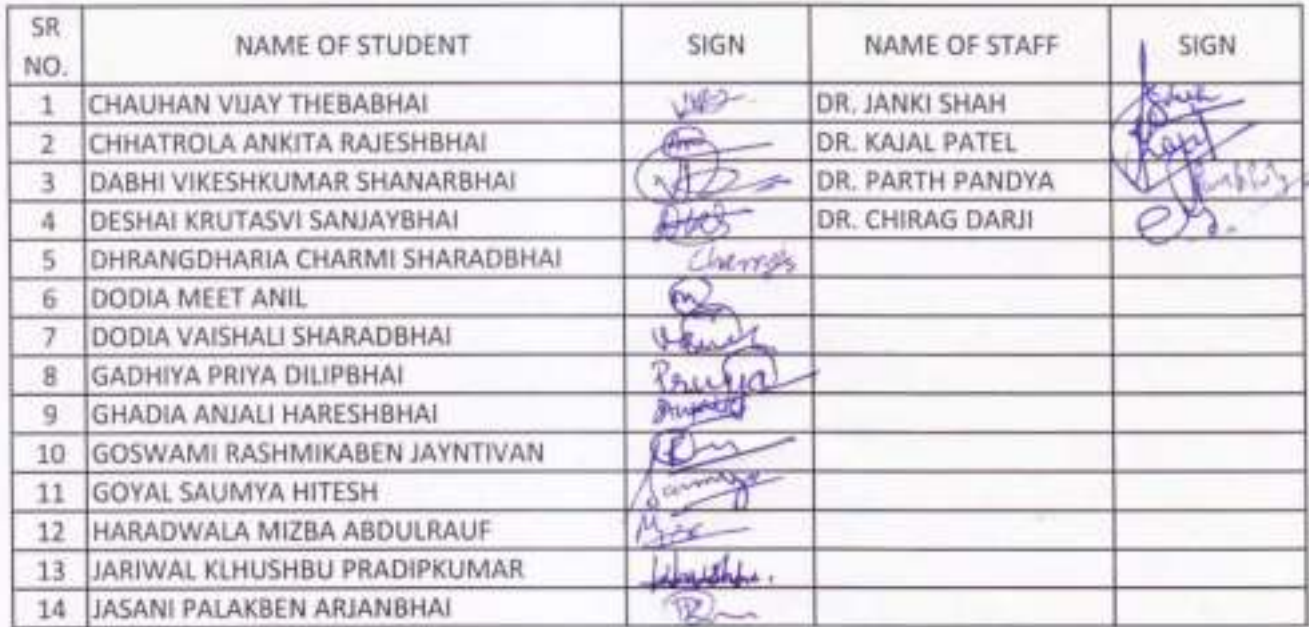 SR NO. NAME OF STUDENT SIGN NAME OF STAFF SIGN
1 CHAUHAN VIJAY THEBABHAI DR. JANKI SHAH
2 CHHATROLA ANKITA RAJESHBHAI DR. KAJAL PATEL
3 DABHI VIKESHKUMAR SHANARBHAI DR. PARTH PANDYA
4 DESHAI KRUTASVI SANJAYBHAI DR. CHIRAG DARJI
5 DHRANGDHARIA CHARMI SHARADBHAI
6 DODIA MEET ANIL
7 DODIA VAISHALI SHARADBHAI
8 GADHIYA PRIYA DILIPBHAI Priya
9 GHADIA ANJALI HARESHBHAI
10 GOSWAMI RASHMIKABEN JAYNTIVAN
11 GOYAL SAUMYA HITESH
12 HARADWALA MIZBA ABDULRAUF
13 JARIWAL KLHUSHBU PRADIPKUMAR
14 JASANI PALAKBEN ARJANBHAI